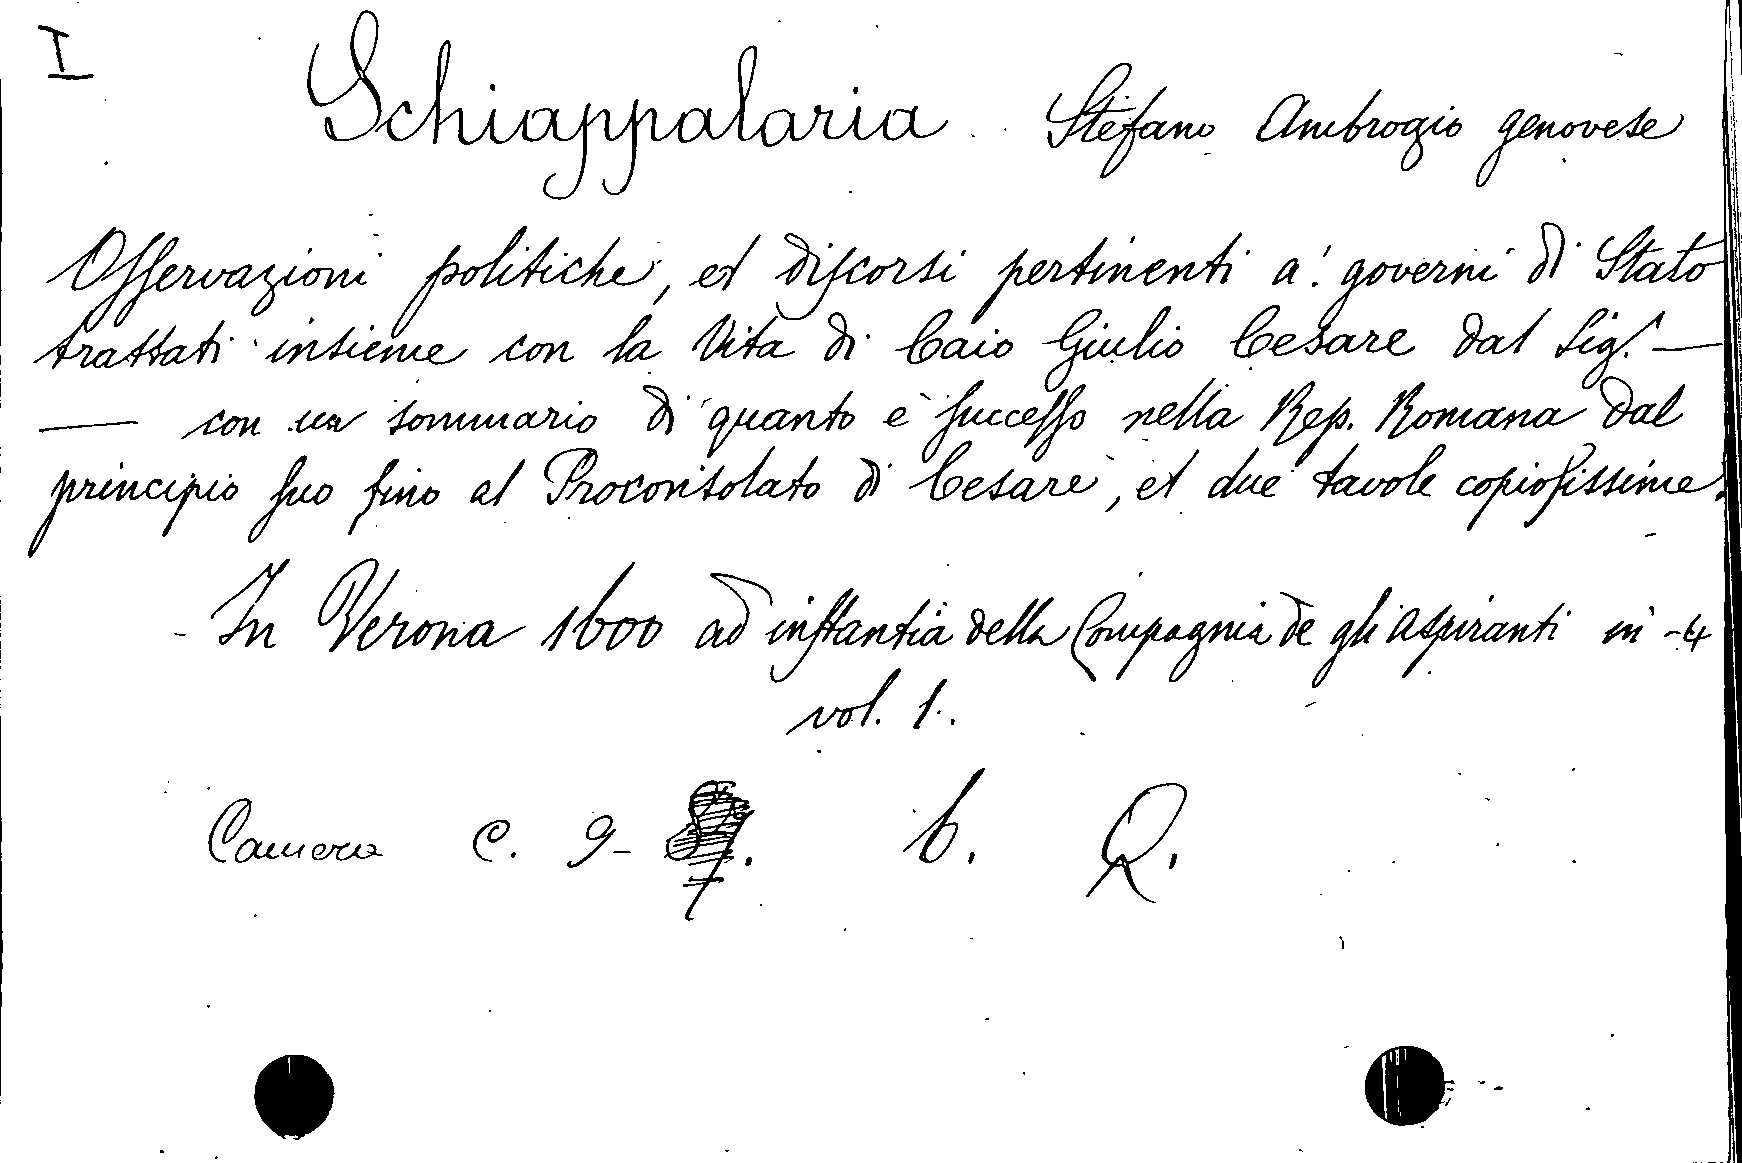 I
Schiappalaria Stefano Ambrogio genovese
Osservazioni politiche, et discorsi pertinenti a' governi di Stato
trattati insieme con la Vita di Caio Giulio Cesare dal Sig. —
— con un sommario di quanto è successo nella Rep. Romana dal
principio suo fino al Proconsolato di Cesare, et due tavole copiosissime.
In Verona 1600 ad instantia della Compagnia de gli Aspiranti in -4
vol. 1.
Camera C. 9- b. Q.